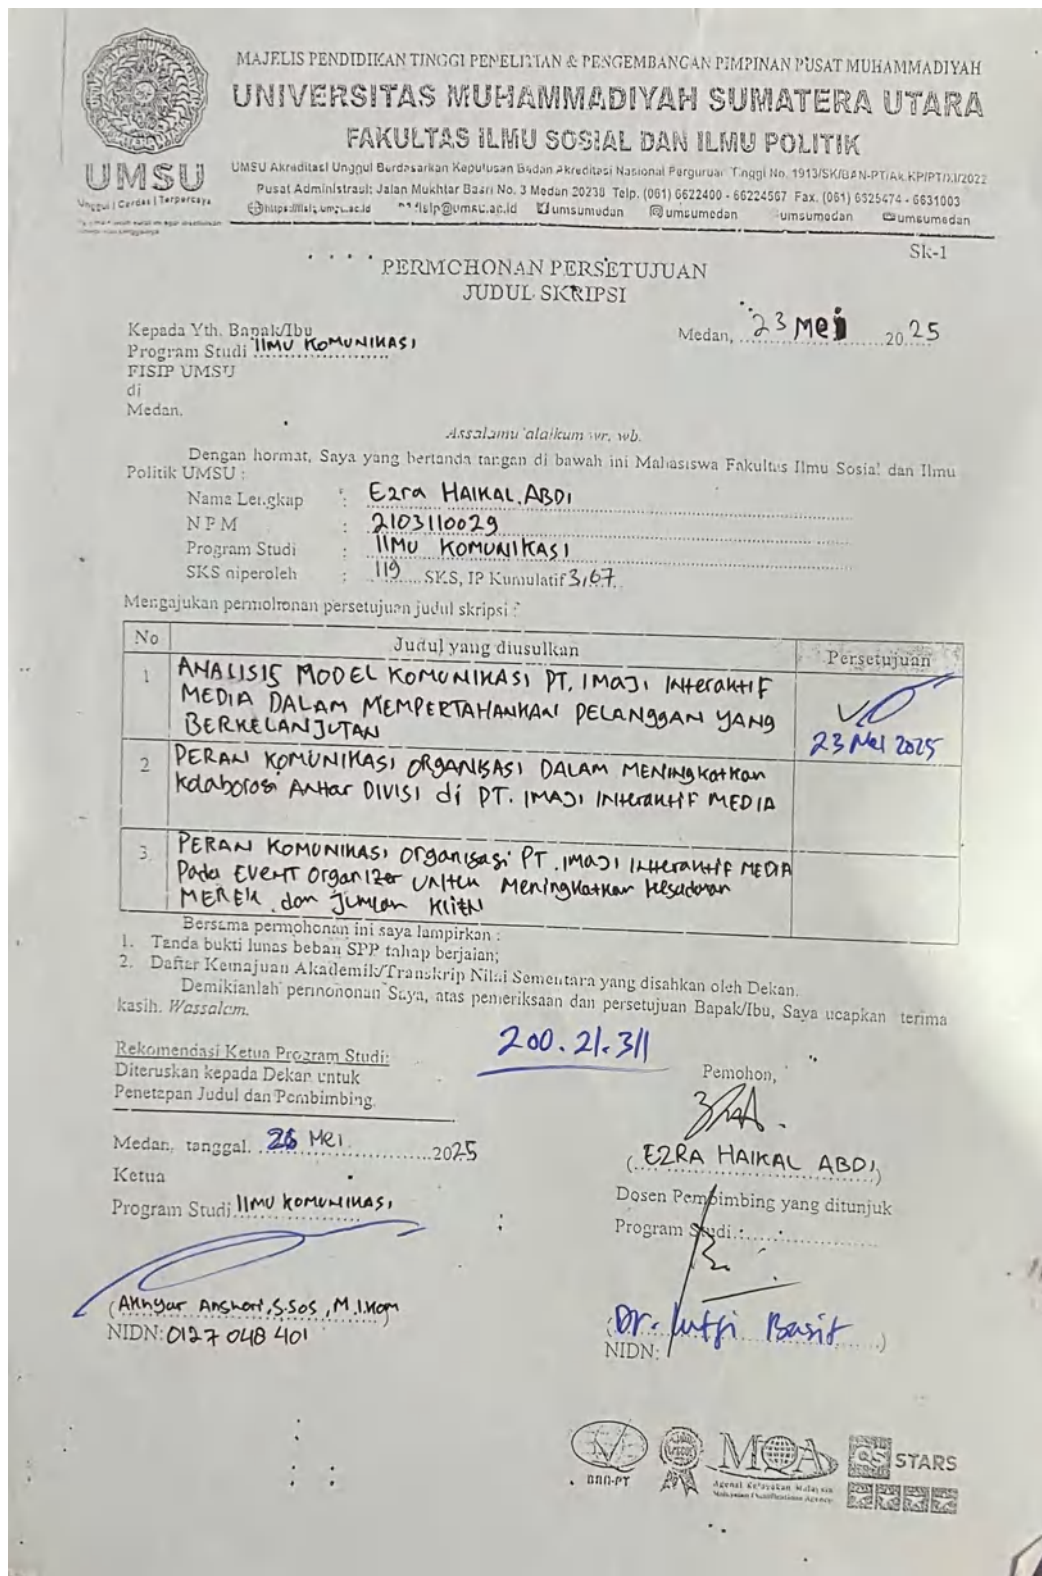 MAJELIS PENDIDIKAN TINGGI PENELITIAN & PENGEMBANGAN PIMPINAN PUSAT MUHAMMADIYAH
UNIVERSITAS MUHAMMADIYAH SUMATERA UTARA
FAKULTAS ILMU SOSIAL DAN ILMU POLITIK
UMSU
Unggul | Cerdas | Terpercaya
UMSU Akreditasi Unggul Berdasarkan Keputusan Badan Akreditasi Nasional Perguruan Tinggi No. 1913/SK/BAN-PT/Ak.KP/PT/XI/2022
Pusat Administrasi: Jalan Mukhtar Basri No. 3 Medan 20238 Telp. (061) 6622400 - 66224567 Fax. (061) 6625474 - 6631003
https://fisip.umsu.ac.id fisip@umsu.ac.id umsumedan umsumedan umsumedan umsumedan
Sk-1
PERMOHONAN PERSETUJUAN
JUDUL SKRIPSI
Medan, 23 Mei 2025
Kepada Yth. Bapak/Ibu
Program Studi ILMU KOMUNIKASI
FISIP UMSU
di
Medan.
Assalamu'alaikum wr. wb.
Dengan hormat, Saya yang bertanda tangan di bawah ini Mahasiswa Fakultas Ilmu Sosial dan Ilmu
Politik UMSU :
Nama Lengkap : Ezra HAIKAL ABDI
N P M : 2103110029
Program Studi : ILMU KOMUNIKASI
SKS diperoleh : 119 SKS, IP Kumulatif 3,67
Mengajukan permohonan persetujuan judul skripsi :
No Judul yang diusulkan Persetujuan
1 ANALISIS MODEL KOMUNIKASI PT. IMAJI INteraktiF
MEDIA DALAM MEMPERTAHANKAN PELANGGAN YANG
BERKELANJUTAN
23 Mei 2025
2 PERAN KOMUNIKASI ORGANISASI DALAM MENINgkatkan
Kolaborasi ANtar DIVISI di PT. IMAJI INteraktiF MEDIA
3. PERAN KOMUNIKASI Organisasi PT. IMAJI INteraktiF MEDIA
Pada EVENT Organizer UNtuk Meningkatkan Kesadaran
MEREK dan Jumlah KliEN
Bersama permohonan ini saya lampirkan :
1. Tanda bukti lunas beban SPP tahap berjalan;
2. Daftar Kemajuan Akademik/Transkrip Nilai Sementara yang disahkan oleh Dekan.
Demikianlah permohonan Saya, atas pemeriksaan dan persetujuan Bapak/Ibu, Saya ucapkan terima
kasih. Wassalam.
200.21.311
Rekomendasi Ketua Program Studi:
Diteruskan kepada Dekan untuk
Penetapan Judul dan Pembimbing.
Medan, tanggal. 26 Mei 2025
Ketua
Program Studi ILMU KOMUNIKASI
(Akhyar Anshori, S.Sos, M.I.Kom)
NIDN: 0127 048 401
Pemohon,
(EZRA HAIKAL ABDI)
Dosen Pembimbing yang ditunjuk
Program Studi
(Dr. Lutfi Basit)
NIDN:
BAN-PT
MQA
Agensi Kelayakan Malaysia
Malaysian Qualifications Agency
QS STARS